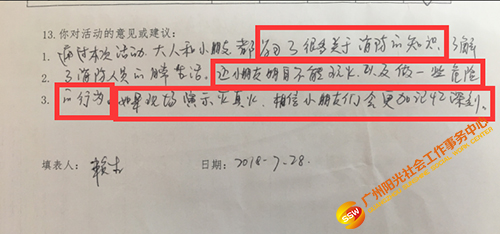 13. 你对活动的意见或建议:
1. 通过本次活动. 大人和小朋友都学习了很多关于消防的知识. 了解
2. 了消防人员的生活. 让小朋友明白不能玩火. 以及做一些危险
3. 的行为. 如果现场演示出真火. 相信小朋友们会更加记忆深刻.
填表人: 日期: 2018-7-28.
SSW 广州阳光社会工作事务中心